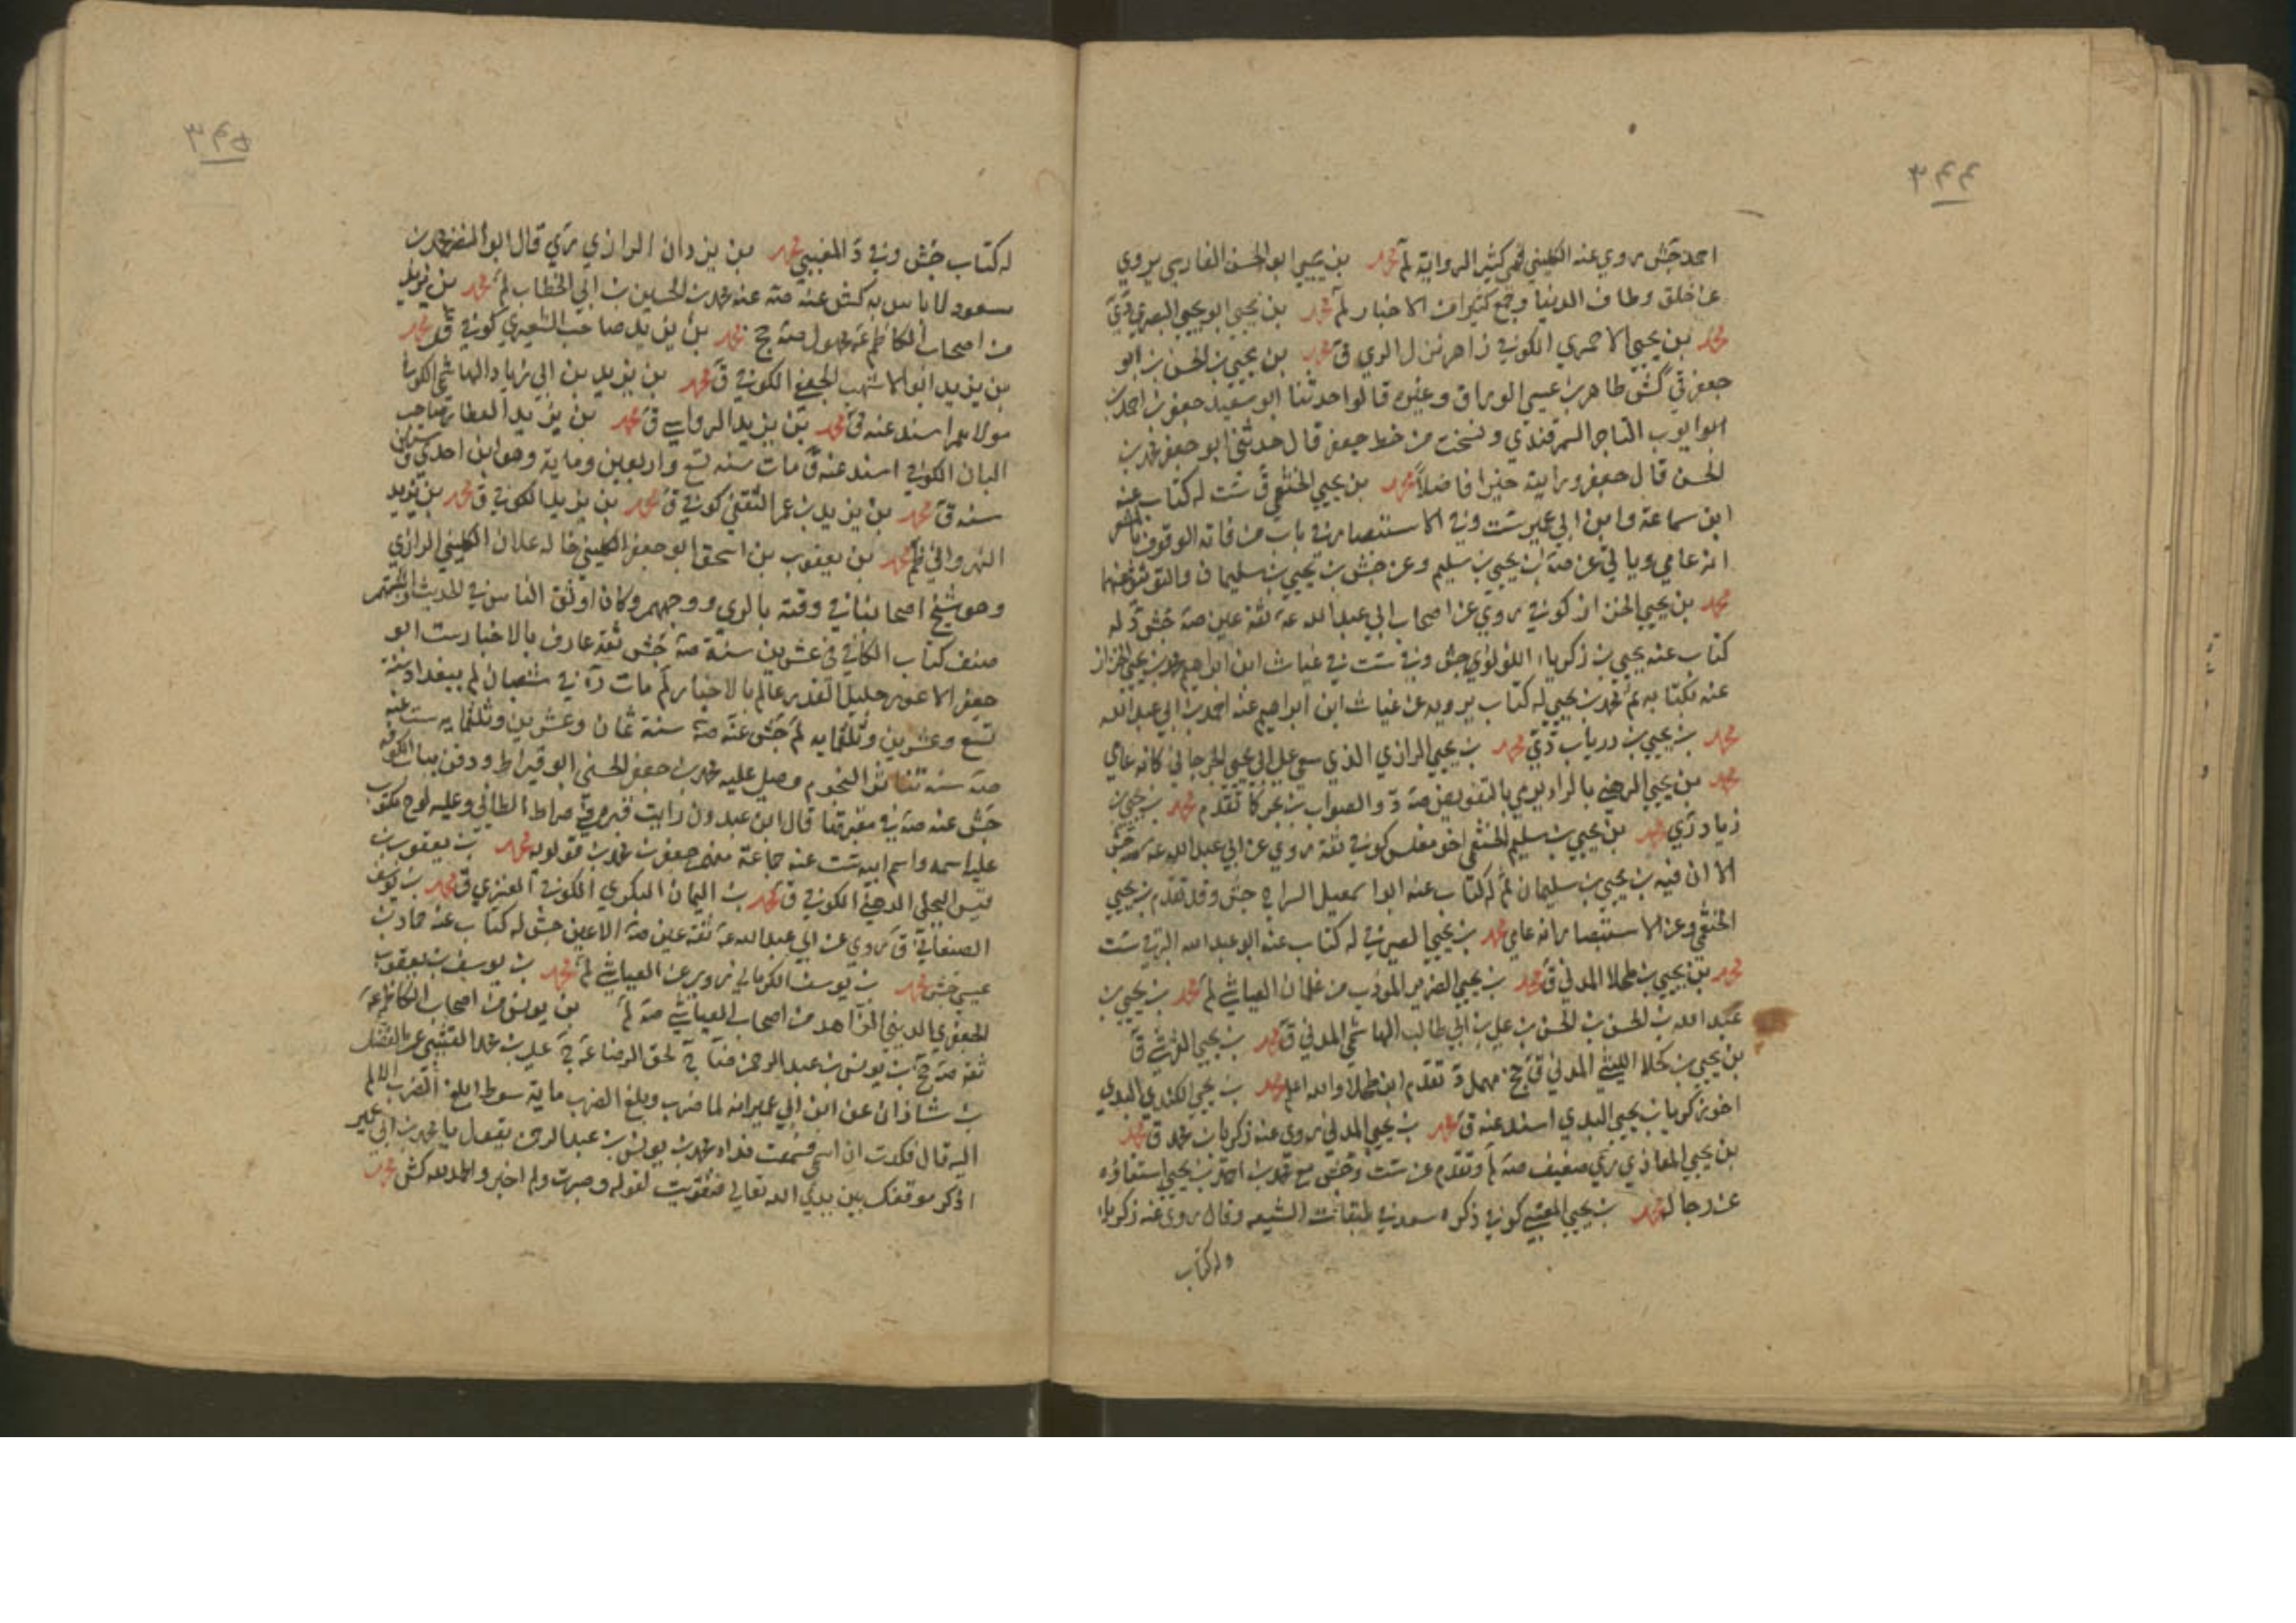 ٣٤٤
احمد جش روى عنه الكليني قمي كثير الرواية لم محمد بن يحيى ابو الحسن الفارسي يروي
عن خلق وطاف الدنيا وجمع كثيرا من الاخبار لم محمد بن يحيى ابو يحيى البصري
محمد بن يحيى الاحمري الكوفي نزل الري ق محمد بن يحيى بن الحسن بن ابو
جعفر كش طاهر بن عيسى الوراق وغيره قالوا حدثنا ابو سعيد جعفر بن احمد بن
ابو ايوب التاجر السمرقندي ونسخت من خط جعفر قال حدثني ابو جعفر محمد بن
الحسن قال جعفر ورايته خيرا فاضلا محمد بن يحيى الخثعمي ق ست له كتاب عنه
ابن سماعة وابن ابي عمير ست وفي الاستبصار في باب من فاته الوقوف
انه عامي وياتي عن صه بن يحيى بن سليم وعن جش بن يحيى بن سليمان والتوثيق عنهما
محمد بن يحيى الخزاز كوفي روى عن اصحاب ابي عبد الله ع ثقة عين صه جش د له
كتاب عنه يحيى بن زكرياء اللؤلؤي جش وفي ست في غياث ابن ابراهيم محمد بن يحيى الخزاز
عنه بكتابه لم محمد بن يحيى له كتاب يرويه عن غياث ابن ابراهيم عنه احمد بن ابي عبد الله
محمد بن يحيى بن درياب دي محمد بن يحيى الرازي الذي سعى على ابي يحيى الجرجاني كانه عامي
محمد بن يحيى الرهني بالراء يرمي بالتفويض صه د والصواب بن بحر كما تقدم محمد بن يحيى بن
زياد محمد بن يحيى بن سليم الخثعمي اخو مغلس كوفي ثقة روى عن ابي عبد الله ع صه جش
الا ان فيه بن يحيى بن سليمان لم له كتاب عنه ابو اسمعيل السراج جش وقد تقدم بن يحيى
الخثعمي وعن الاستبصار انه عامي محمد بن يحيى الصيرفي له كتاب عنه ابو عبد الله البرقي ست
محمد بن يحيى بن طحلا المدني ق محمد بن يحيى الضرير المؤدب من غلمان العياشي لم محمد بن يحيى بن
عبد الله بن الحسن بن الحسن بن علي بن ابي طالب الهاشمي المدني ق محمد بن يحيى ق
بن يحيى بن كحلا الليثي المدني ق جخ مهمل د تقدم ابن طحلا والله اعلم محمد بن يحيى الكندي البدي
اخو زكريا بن يحيى البدي اسند عنه ق محمد بن يحيى المدني روى عنه زكريا بن محمد ق محمد
بن يحيى المعاذي ري ضعيف صه لم وتقدم عن ست وجش مع محمد بن احمد بن يحيى استثناؤه
عن رجاله محمد بن يحيى كوفي ذكره سعد في طبقات الشيعه وقال روى عنه زكريا
وله كتاب
٣٤٥
له كتاب جش وفي د المغيبي محمد بن يزداد الرازي ري قال ابو النضر محمد بن
مسعود لا باس به كش عنه صه عنه محمد بن الحسين بن ابي الخطاب لم محمد بن يزيد
من اصحاب الكاظم ع مجهول صه جخ محمد بن يزيد صاحب الشعيري كوفي ق محمد
بن يزيد ابو الاشهب الجعفي الكوفي ق محمد بن يزيد بن ابي زياد الهاشمي الكوفي
مولاهم اسند عنه ق محمد بن يزيد الرواسي ق محمد بن يزيد العطار صاحب
البان الكوفي اسند عنه ق مات سنه تسع واربعين ومايه وهو ابن احدى وستين
سنه ق محمد بن يزيد بن عمر الثقفي كوفي ق محمد بن يزيد الكوفي ق محمد بن يزيد
النهرواني ظم محمد بن يعقوب بن اسحق ابو جعفر الكليني خاله علان الكليني الرازي
وهو شيخ اصحابنا في وقته بالري ووجههم وكان اوثق الناس في الحديث واثبتهم
صنف كتاب الكافي في عشرين سنة صه جش ثقة عارف بالاخبار ست ابو
جعفر الاعور جليل القدر عالم بالاخبار لم مات في شعبان لم ببغداد سنة
تسع وعشرين وثلثمايه لم جش عنه صه سنة ثمان وعشرين وثلثمايه ست عنه
صه سنه تناثر النجوم وصلى عليه محمد بن جعفر الحسني ابو قيراط ودفن بباب الكوفه
جش عنه صه في مقبرتها قال ابن عبدون رايت قبره في صراط الطائي وعليه لوح مكتوب
عليه اسمه واسم ابيه ست عنه جماعة منهم جعفر بن محمد بن قولويه محمد بن يعقوب بن
قيس البجلي الدهني الكوفي ق محمد بن اليمان البكري الكوفي العنزي ق محمد بن يوسف
الصنعاني ق روى عن ابي عبد الله ع ثقة عين صه الا عين جش له كتاب عنه حماد بن
عيسى جش محمد بن يوسف الكرماني يروي عن العياشي لم محمد بن يوسف بن يعقوب
الجعفري الديني الزاهد من اصحاب العياشي صه لم بن يونس من اصحاب الكاظم ع
ثقه صه جخ بن يونس بن عبد الرحمن ضا لحق الرضا ع علي بن محمد القتيبي عن الفضل
بن شاذان عن ابن ابي عمير انه لما ضرب وبلغ الضرب ماية سوط ابلغ الضرب الالم
اليه قال فكدت ان اسمي فسمعت نداء محمد بن يونس بن عبد الرحمن يقول يا محمد بن ابي عمير
اذكر موقفك بين يدي الله تعالى فتقويت لقوله وصبرت ولم اخبر والحمد لله كش محمد